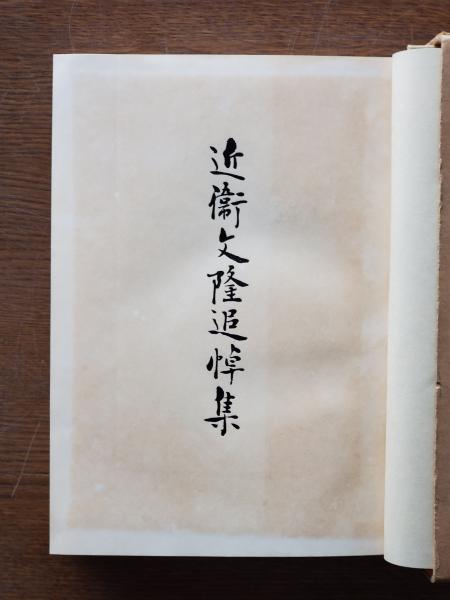 近衞文隆追悼集